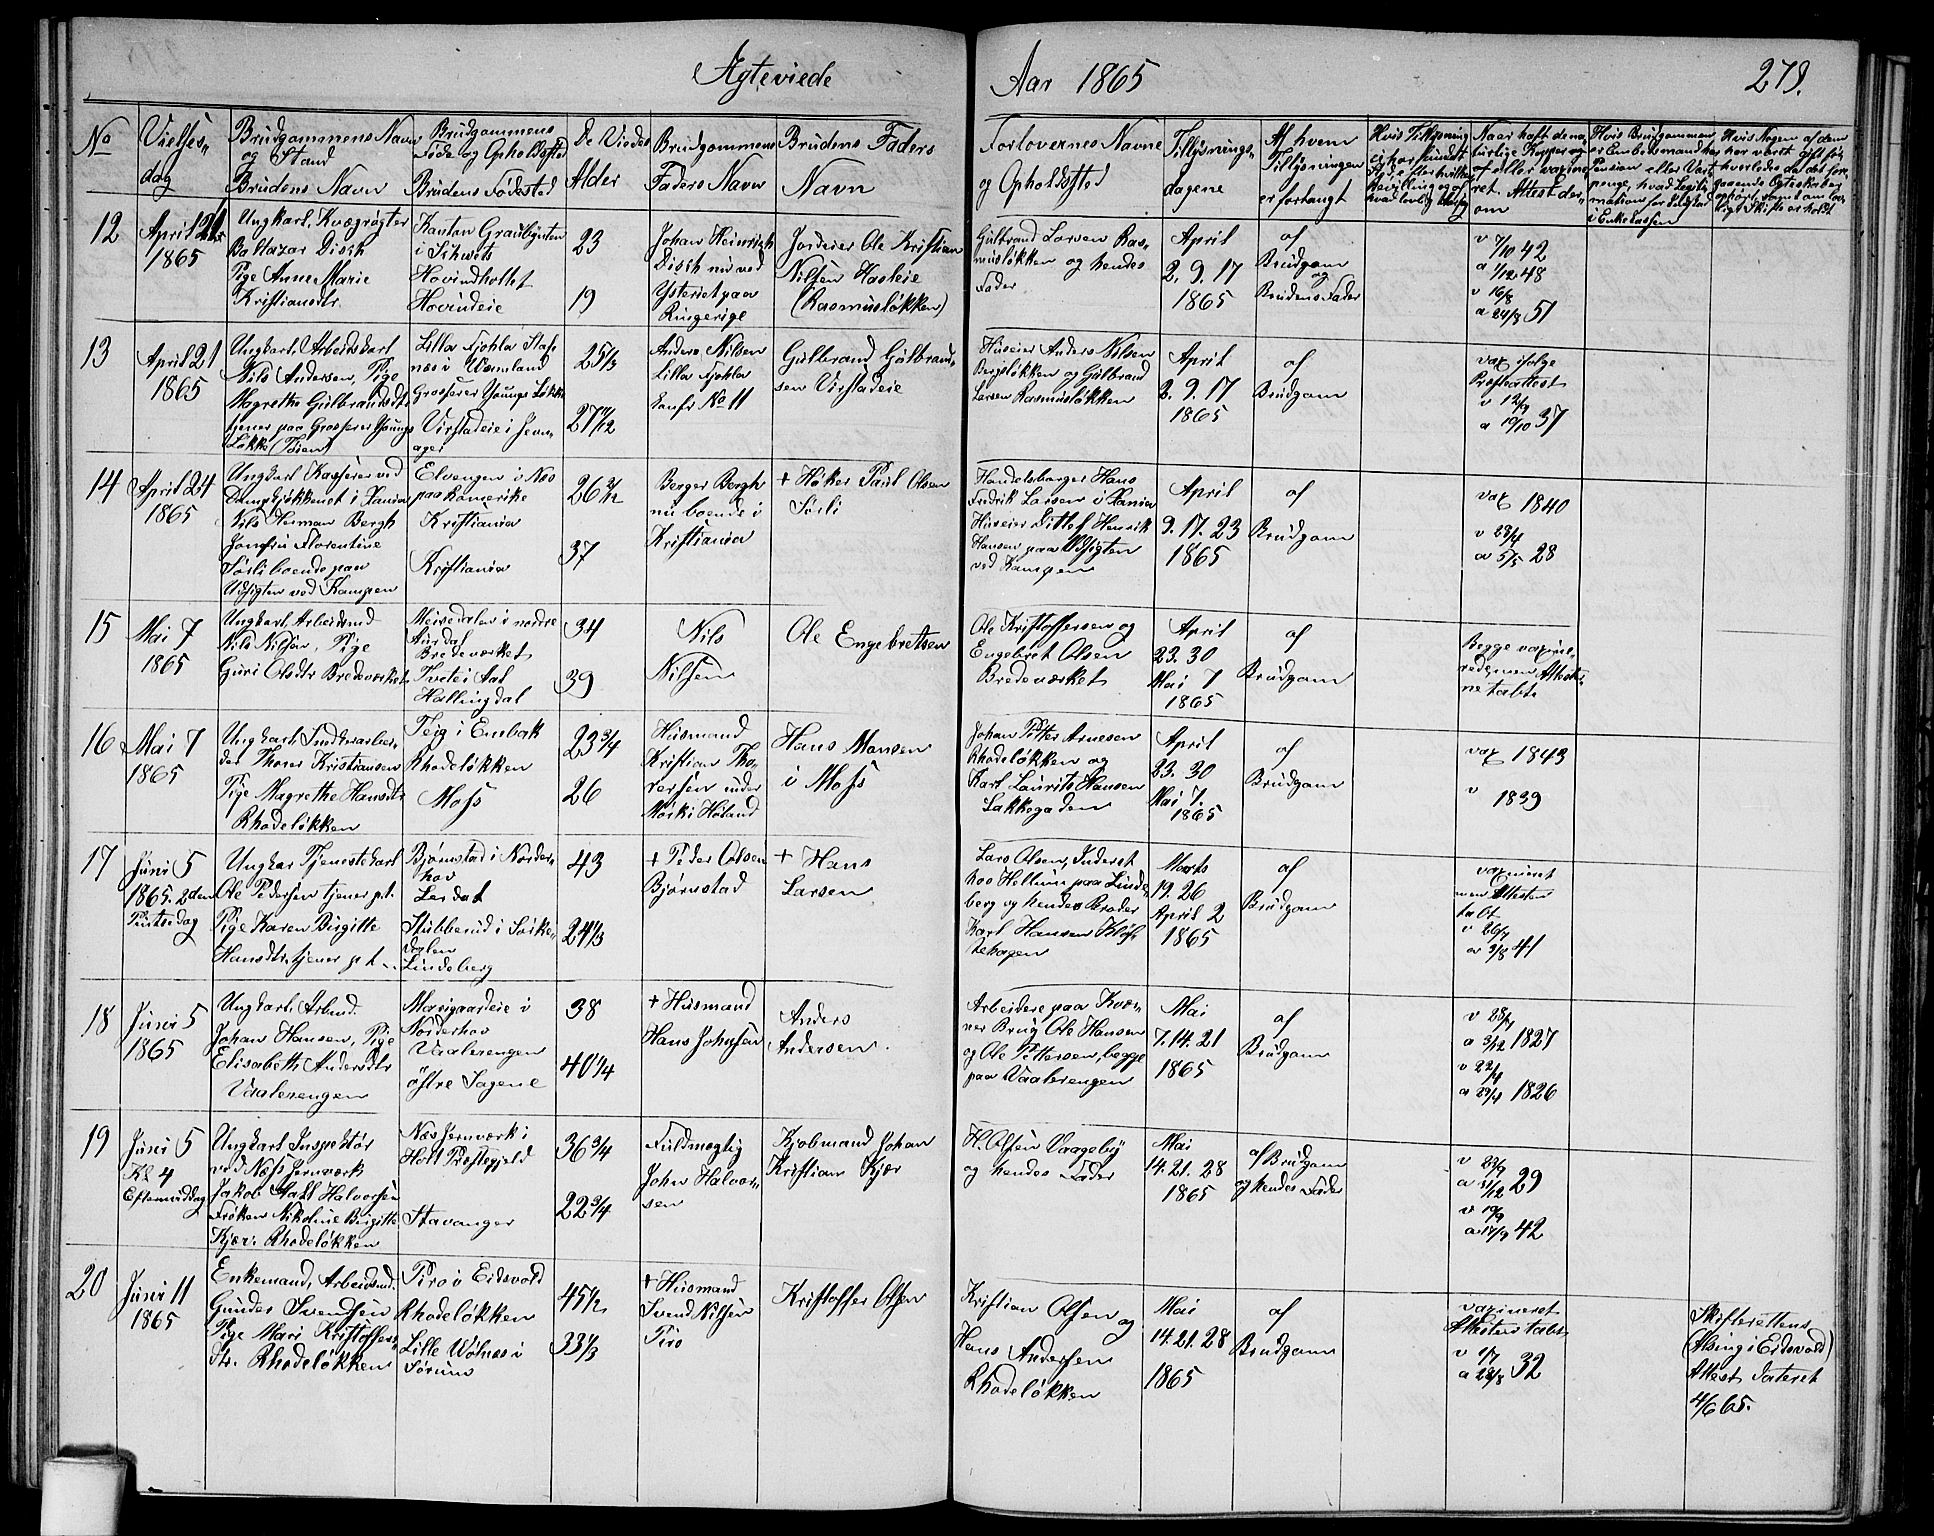 Ægteviede
Aar 1865
279.
No
Vielses-
dag
Brudgommens Navn
og Stand
Brudens Navn
Brudgommens
Føde og Opholdssted
Brudens Fødested
De Viedes
Alder
Brudgommens
Faders Navn
Brudens Faders
Navn
Forlovernes Navne
og Opholdssted
Tillysnings-
dagene
Af hvem
Tillysningen
er forlangt
12
April 21
1865
Ungkarl, Kvægrøgter
Baltazar Disch
Pige Anne Marie
Kristiansdtr.
Kanton Graubynten
i Schweits
Hovindholtet
Hovindeie
23
19
Johan Heinrich
Disch nu ved
Ysteriet paa
Ringerige
Jordeier Ole Kristian
Nilsen Hasleie
(Rasmusløkken)
Gulbrand Larsen Ras-
musløkken og hendes
Fader
April
2. 9. 17
1865
af
Brudgom
og
Brudens Fader
v 7/10 42
a 1/12 48
v 16/8
a 24/8 51
13
April 21
1865
Ungkarl, Arbeidskarl
Nils Andersen, Pige
Magrethe Gulbrandsdtr
tjener paa Grosserer Youngs
Løkke (Tøien)
Lilla Fjohla Staf-
næs i Wermland
Grosserer Youngs Løkke
Virstadeie i Jevn-
ager
25 1/3
27 7/12
Anders Nilsen
Lilla Fjohla
Gulbrand Gulbrand-
sen Virstadeie
Huseier Anders Nilsen
Bergsløkken og Gulbrand
Larsen Rasmusløkken
April
2. 9. 17
1865
af
Brudgom
vax ifølge
Præsteattest
v 12/9
a 19/10 37
14
April 24
1865
Ungkarl Kasserer ved
Dampkjøkkenet i Xania
Nils Herman Bergh
Jomfru Florentine
Sørli boende paa
Udsigten ved Kampen
Elvengen i Næs
paa Romerike
Kristiania
Kristiania
26
37
Berger Bergh
nu boende i
Kristiania
+ Høker Paul Olsen
Sørli
Handelsborger Hans
Fredrik Larsen i Xania
Huseier Ditlef Henrik
Hansen paa Udsigten
ved Kampen
April
9. 17. 23
1865
af
Brudgom
vax 1840
v 28/4
a 5/5 28
15
Mai 7
1865
Ungkarl Arbeidsmd
Nils Nilsen, Pige
Guri Olsdtr Bredeværket
Meisedalen i nordre
Aurdal
Bredeværket
Tveite i Aal
Hallingdal
34
39
Nils
Nilsen
Ole Engebretsen
Ole Kristoffersen og
Engebret Olsen
Bredeværket
April
23. 30
Mai 7
1865
af
Brudgom
Begge vaxine-
rede, men Atteste-
ne tabt.
16
Mai 7
1865
Ungkarl
Thorer Kristiansen
Pige Magrethe Hansdtr
Rhodeløkken
Teig i Enebak
Rhodeløkken
Moss
23 3/4
26
Husmand
Kristian Tho-
rersen under
Høland
Hans Monsen
i Moss
Johan Petter Arnesen
Rhodeløkken og
Karl Laurits Hansen
Lakkegaden
April
23. 30
Mai 7.
1865
af
Brudgom
vax 1843
v 1839
17
Juni 5
1865. 2den
Pintsedag
Ungkar Tjenestekarl
Ole Pedersen tjener p.t.
Pige Karen Birgitte
Hansdtr. tjener p.t.
Bjørnstad i Norder-
hov
Leidal
Stubberud i Sørke-
dalen
Lindeberg
43
24 1/3
+ Peder Olsen
Bjørnstad
+ Hans
Larsen
Lars Olsen, Inderst
hos Hellum paa Linde-
berg og hendes Broder
Karl Hansen
Marts
19. 26
April 2
1865
af
Brudgom
vaxineret
men Attesten
tabt
v 26/7
a 3/8 41
18
Juni 5
1865
Ungkarl Arbmd.
Johan Hansen, Pige
Elisabeth Andersdtr
Vaalerengen
Moesgaardeie i
Norderhov
Vaalerengen
østre Sagene
38
40 1/4
+ Husmand
Hans Johnsen
Anders
Andersen.
Arbeidere paa Kvær-
ner Brug Ole Hansen
og Ole Pettersen, begge
paa Vaalerengen
Mai
7. 14. 21
1865
af
Brudgom
v 28/7
a 3/12 1827
v 22/4
a 29/4 1826
19
Juni 5
Kl 4
Eftermiddag
Ungkarl Inspektør
ved Næs Jernværk
Jakob Aall Halvorsen
Frøken Nikoline Birgitte
Kjær. Rhodeløkken
Næs Jernværk i
Holt Præstegjeld
Stavanger
36 3/4
22 3/4
Fuldmægtig
John Halvor-
sen
Kjøbmand Johan
Kristian Kjær
H. Olsen Vaagebøy
og hendes Fader
Mai
14. 21. 28
1865
af Brudgom
og hendes Fader
v 23/9
a 31/12 29
v 10/9
a 17/9 42
20
Juni 11
1865
Enkemand, Arbeidsmd.
Gunder Svendsen
Pige Mari Kristoffers-
dtr. Rhodeløkken
Piro i Eidsvold
Rhodeløkken
Lille Wølnæs i
Sørum
45 1/2
33 1/3
+ Husmand
Svend Nilsen
Piro
Kristoffer Olsen
Kristian Olsen og
Hans Andersen
Rhodeløkken
Mai
14. 21. 28
1865
af
Brudgom
vaxineret
Attesten tabt
v 1/7
a 28/8 32
Skifterettens
(Alsing i Eidsvold)
Attest dateret
4/6 65.